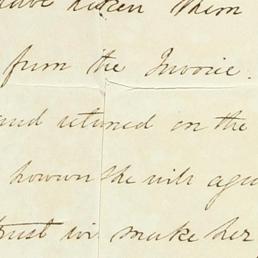 have taken them
from the Invoice.
and returned on the
howevr she will aga
trust wi make her